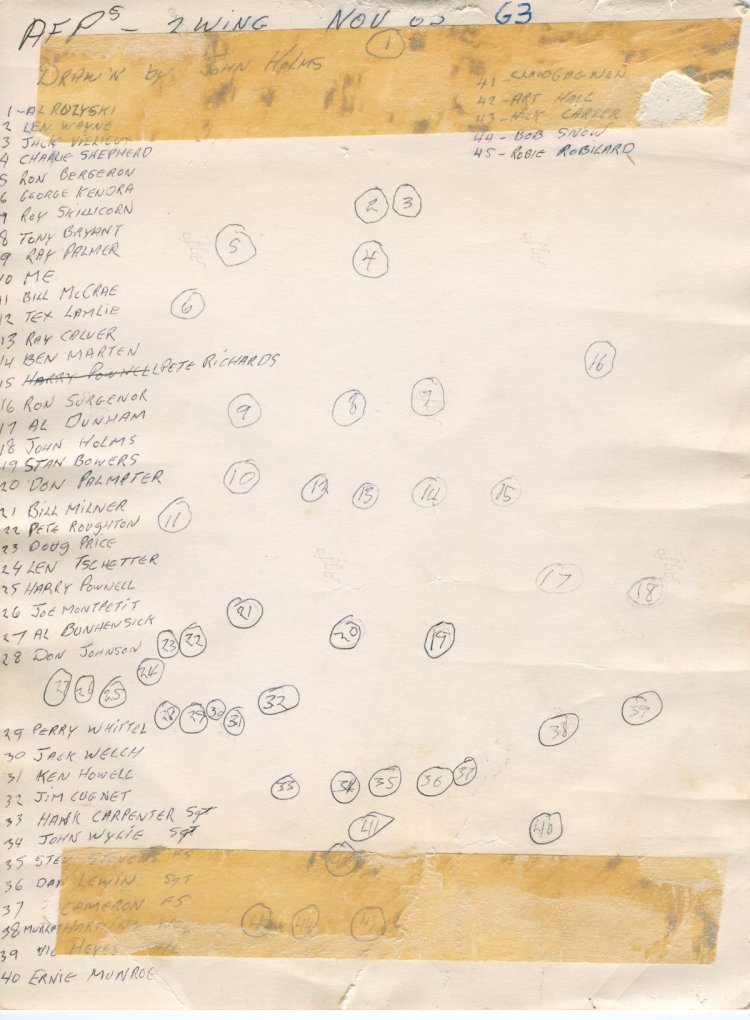 AFPs - 2 WING NOV 63
1
DRAW'N by JOHN HOLMS
41 - CLAUD GAGNON
42 - ART HALL
43 - NICK CARTER
44 - BOB SNOW
45 - ROBIE ROBILARD
1 - AL ROZYSKI
2 LEN WAYNE
3 JACK
4 CHARLIE SHEPHERD
5 RON BERGERON
6 GEORGE KENDRA
9 ROY SKILLICORN
8 TONY BRYANT
9 RAY PALMER
10 ME
11 BILL McCRAE
12 TEX LAMLIE
13 RAY CALVER
14 BEN MARTEN
15 HARRY POWNELL PETE RICHARDS
16 RON SURGENOR
17 AL DUNHAM
18 JOHN HOLMS
19 STAN BOWERS
20 DON PALMATER
21 BILL MILNER
22 PETE ROUGHTON
23 DOUG PRICE
24 LEN TSCHETTER
25 HARRY POWNELL
26 JOE MONTPETIT
27 AL BUNHENSICK
28 DON JOHNSON
29 PERRY WHITTEL
30 JACK WELCH
31 KEN HOWELL
32 JIM CUGNET
33 HANK CARPENTER Sgt
34 JOHN WYLIE Sgt
35 STEVENS FS
36 DAN LEWIN SGT
37 CAMERON FS
38 MURRAY
39 VIC
40 ERNIE MUNROE
2 3
5 4
6
16
9 8 7
10 12 13 14 15
11
17 18
21
23 22 20 19
24
27 26 25
32
28 29 30 31 38 39
33 34 35 36 37
41 40
42
44 43